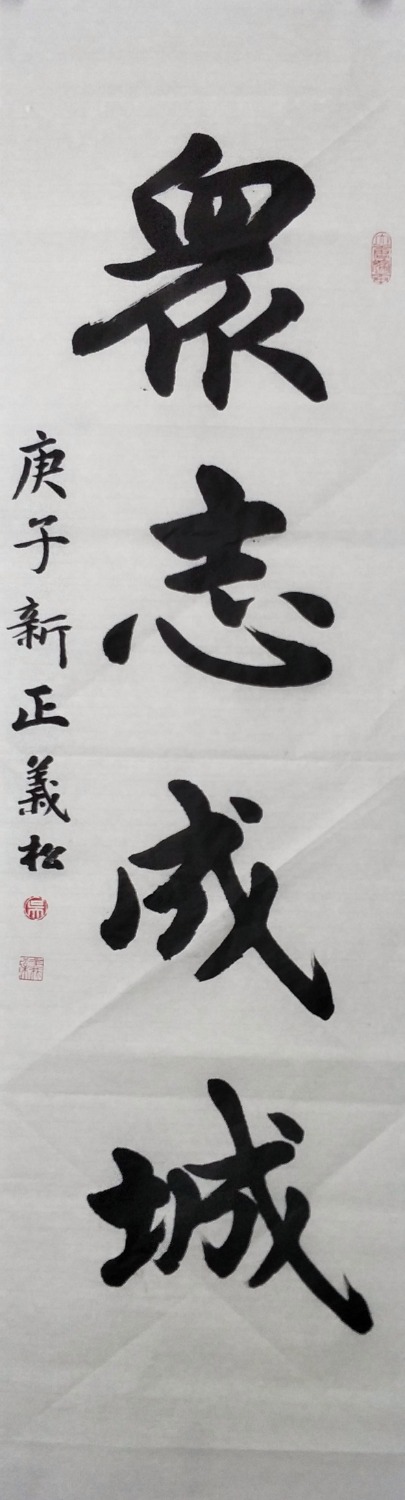 眾志成城
庚子新正義松